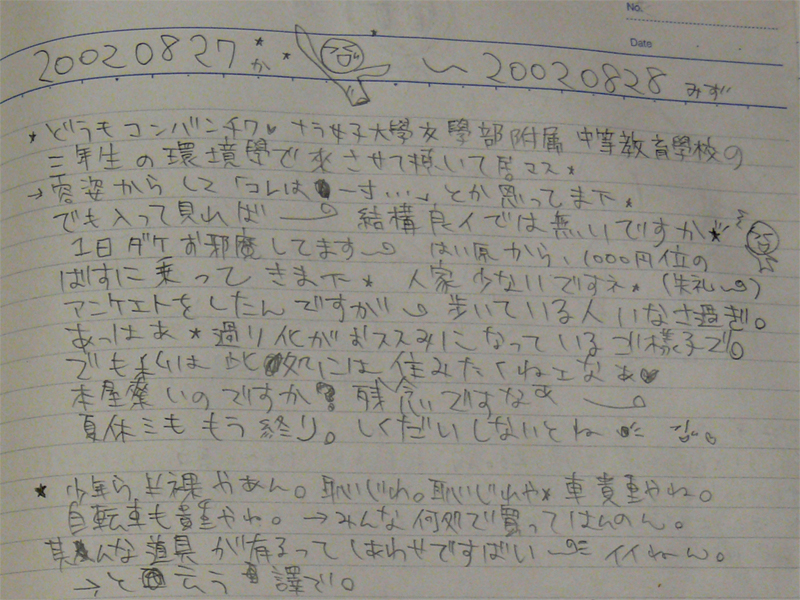 No.
Date
20020827 か 〜 20020828 みず
★どうもコンバンチワ♥ナラ女子大學文學部附属中等教育學校の
三年生の環境學で来させて頂いて居マス★
→容姿からして「コレは●ーす…」とか思ってま下★
でも入って見れば〜 結構良イでは無いですか★
1日ダケお邪魔してます〜 はい原から、1000円位の
ばすに乗ってきま下★ 人家少ないですネ★(失礼〜)
アンケエトをしたんですが〜歩いている人いなさ過ぎ。
あっはぁ★過ソ化がおススみになっている御様子で。
でも私は此処には住みたくねェなぁ♥
本屋無いのですか? 残念ですなぁ〜
夏休ミももう終り。しくだいしないとね
★少年ら半裸やあん。恥じれ。恥じれや★車貴重やね。
自転車も貴重やね。→みんな何処で買ってはんのん。
其んな道具が有るってしあわせですばい〜イイねん。
→と云う譯で。